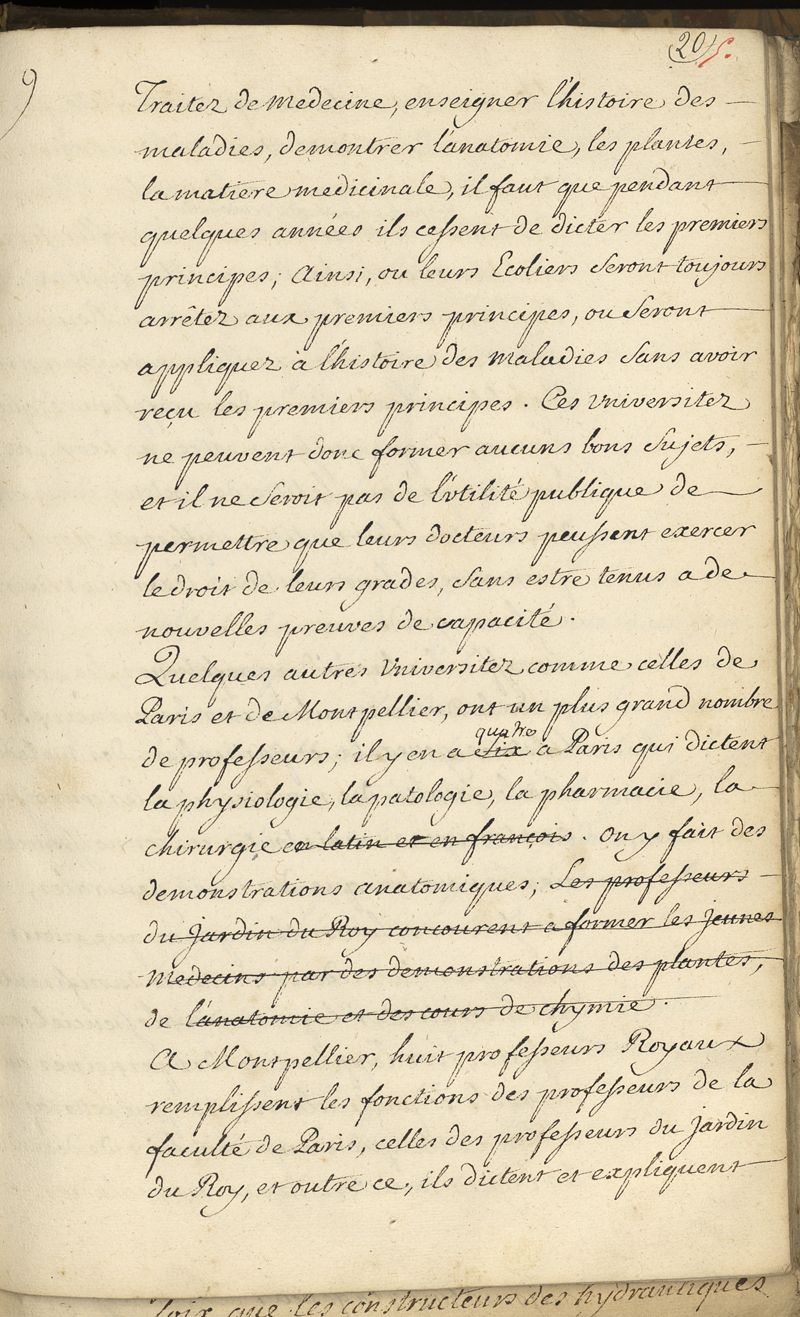 20 5.
9
Traitez de medecine, enseigner l'histoire des
maladies, demontrer l'anatomie, les plantes,
la matiere medicinale, il faut que pendant
quelques années ils cessent de dicter les premiers
principes; Ainsi, ou leurs Ecoliers seront toujours
arrêtez aux premiers principes, ou seront
appliquez à l'histoire des maladies sans avoir
reçu les premiers principes. Ces Vniversitez
ne peuvent donc former aucuns bons sujets,
et il ne seroit pas de l'vtilité publique de
permettre que leurs docteurs peussent exercer
le droit de leurs grades, sans estre tenus a de
nouvelles preuves de capacité.
Quelques autres Vniversitez comme celles de
Paris et de Montpellier, ont un plus grand nombre
quatre
de professeurs; il y en a six a Paris qui dictent
la physiologie, la patologie, la pharmacie, la
chirurgie en latin et en françois. On y fait des
demonstrations anatomiques; Les professeurs
du Jardin du Roy concourent a former les jeunes
Medecins par des demonstrations des plantes,
de l'anatomie et des cours de chymie.
A Montpellier, huit professeurs Royaux
remplissent les fonctions des professeurs de la
faculté de Paris, celles des professeurs du Jardin
du Roy, et outre ce, ils dictent et expliquent
que les constructeurs des hydrauliques